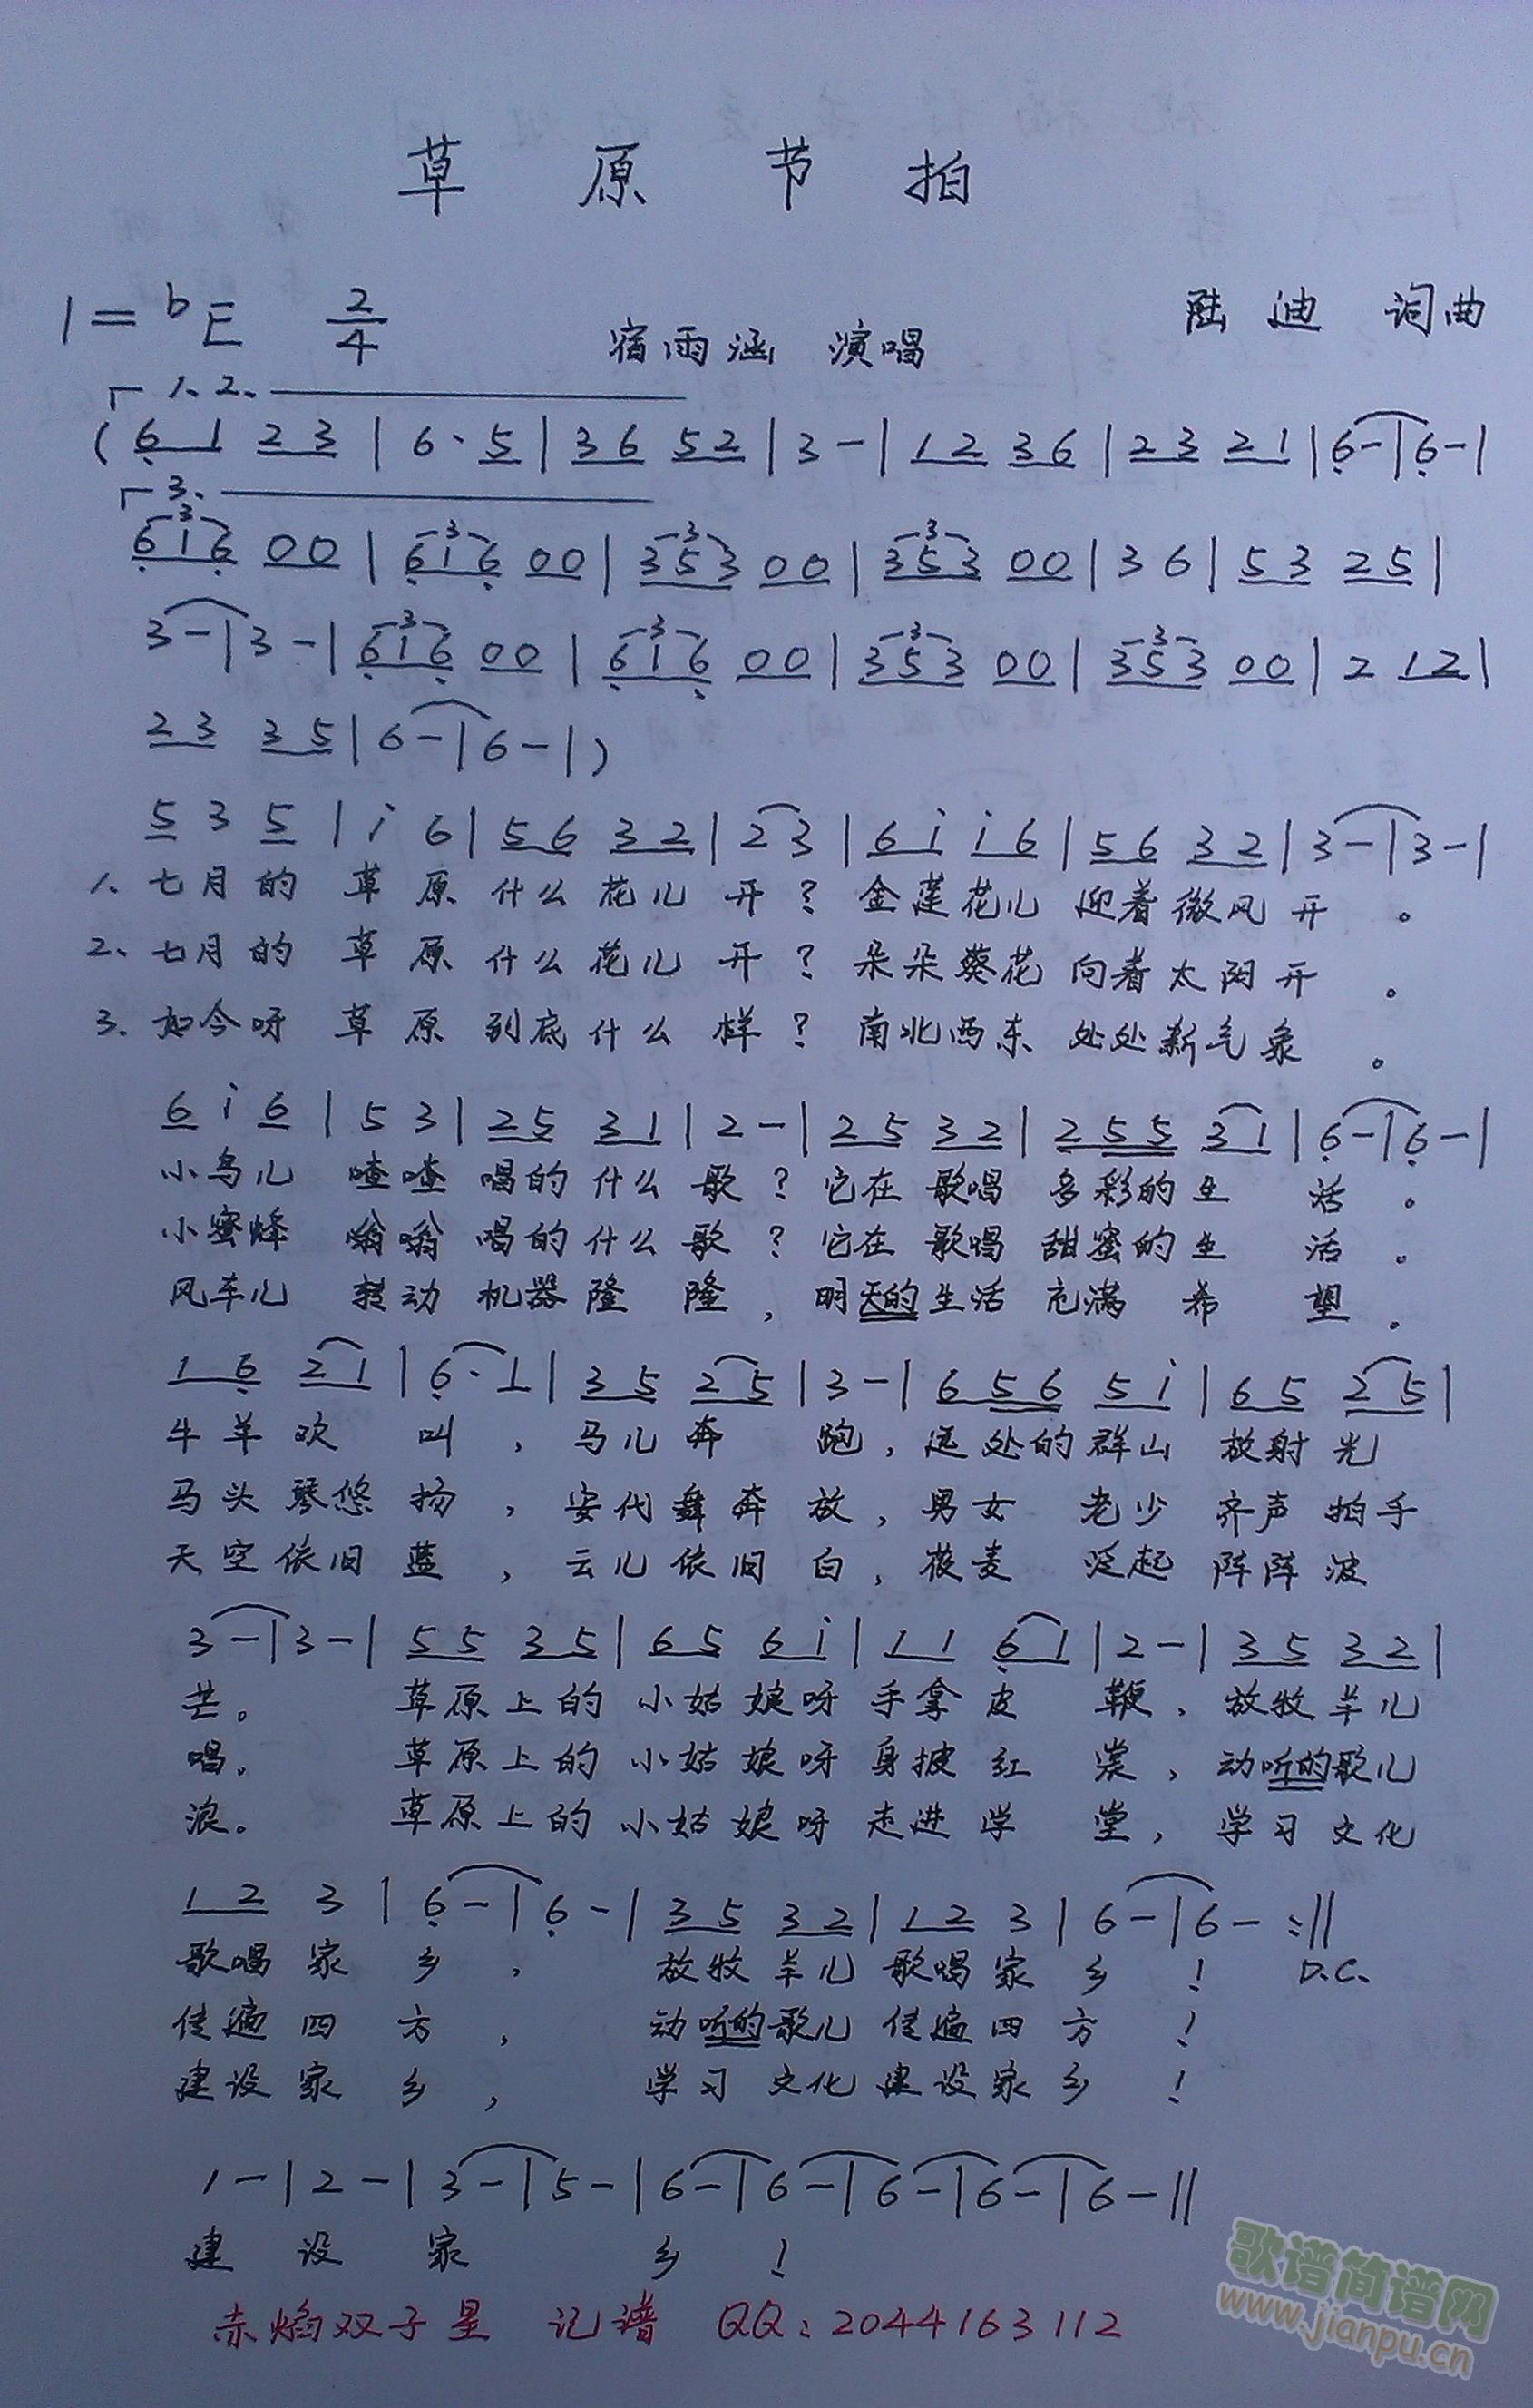 草 原 节 拍
1=bE 2/4 宿雨涵 演唱 陆迪 词曲
┌1、2、
(6̣ 1 2 3 | 6· 5 | 3 6 5 2 | 3 - | 1 2 3 6 | 2 3 2 1 | 6̣ - | 6̣ - |
┌3、
3 3 3 3
6̣ 1 6̣ 0 0 | 6̣ 1 6̣ 0 0 | 3 5 3 0 0 | 3 5 3 0 0 | 3 6 | 5 3 2 5 |
3 3 3 3
3 - | 3 - | 6̣ 1 6̣ 0 0 | 6̣ 1 6̣ 0 0 | 3 5 3 0 0 | 3 5 3 0 0 | 2 1 2 |
2 3 3 5 | 6 - | 6 - | )
5 3 5 | i 6 | 5 6 3 2 | 2 3 | 6 i i 6 | 5 6 3 2 | 3 - | 3 - |
1、七月的 草 原 什么花儿 开？ 金莲花儿 迎着微风 开 。
2、七月的 草 原 什么花儿 开？ 朵朵葵花 向着太阳 开 。
3、如今呀 草 原 到底什么 样？ 南北西东 处处新气 象 。
6 i 6 | 5 3 | 2 5 3 1 | 2 - | 2 5 3 2 | 2 5 5 3 1 | 6̣ - | 6̣ - |
小鸟儿 喳喳 唱的什么 歌？ 它在 歌唱 多彩的生 活 。
小蜜蜂 嗡嗡 唱的什么 歌？ 它在 歌唱 甜蜜的生 活 。
风车儿 转动 机器隆 隆， 明天的生活 充满 希 望 。
1 6̣ 2 1 | 6̣· 1 | 3 5 2 5 | 3 - | 6 5 6 5 i | 6 5 2 5 |
牛羊欢 叫 ， 马儿奔 跑， 远处的群山 放射光
马头琴悠 扬 ， 安代舞奔 放， 男女 老少 齐声拍手
天空依旧 蓝 ， 云儿依旧 白， 莜麦 泛起 阵阵波
3 - | 3 - | 5 5 3 5 | 6 5 6 i | 1 1 6̣ 1 | 2 - | 3 5 3 2 |
芒。 草原上的 小姑娘呀 手拿皮 鞭， 放牧羊儿
唱。 草原上的 小姑娘呀 身披红 裳， 动听的歌儿
浪。 草原上的 小姑娘呀 走进学 堂， 学习文化
1 2 3 | 6̣ - | 6̣ - | 3 5 3 2 | 1 2 3 | 6 - | 6 - :||
歌唱家 乡 ， 放牧羊儿 歌唱家 乡 ！ D.C.
传遍四 方 ， 动听的歌儿 传遍四 方 ！
建设家 乡 ， 学习文化 建设家 乡 ！
1 - | 2 - | 3 - | 5 - | 6 - | 6 - | 6 - | 6 - | 6 - ||
建 设 家 乡 ！
赤焰双子星 记谱 QQ：2044163112
歌谱简谱网
www.jianpu.cn